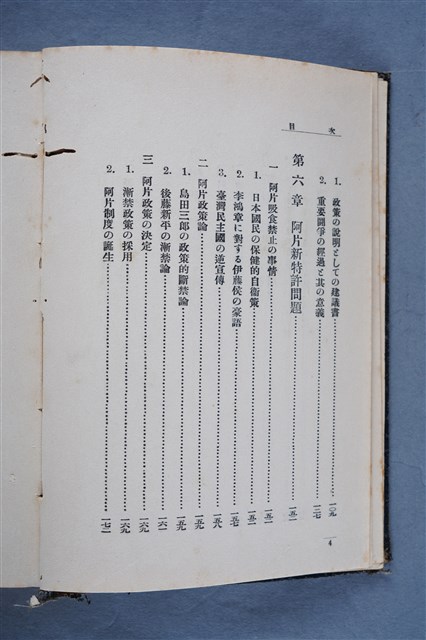 目次
1. 政策の說明としての建議書……一〇九
2. 重要鬪爭の經過と其の意義……一三七
第六章 阿片新特許問題……一五一
一 阿片吸食禁止の事情……一五一
1. 日本國民の保健的自衞策……一五一
2. 李鴻章に對する伊藤侯の豪語……一五七
3. 臺灣民主國の逆宣傳……一五八
二 阿片政策論……一五九
1. 島田三郞の政策的斷禁論……一五九
2. 後藤新平の漸禁論……一六一
三 阿片政策の決定……一六九
1. 漸禁政策の採用……一六九
2. 阿片制度の誕生……一七二
4